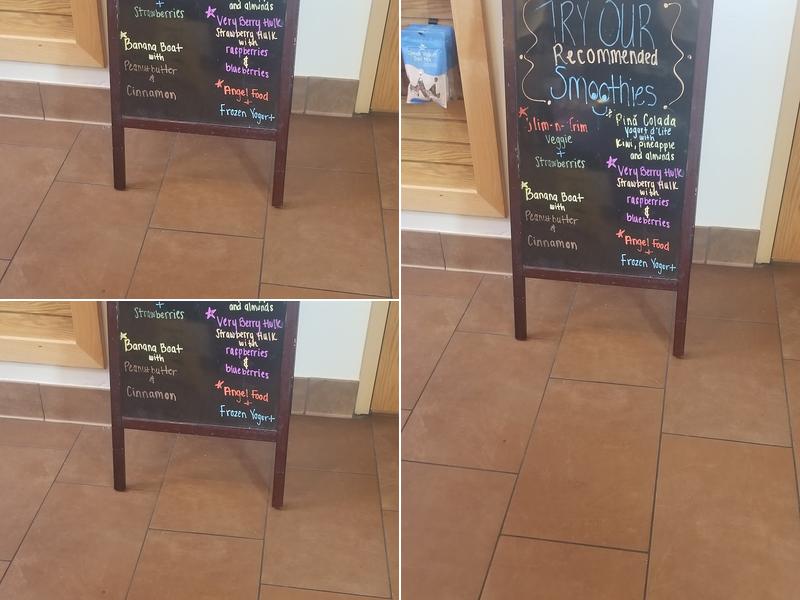 and almonds
+
Strawberries
Very Berry Hulk
Strawberry Hulk
with
raspberries
&
blueberries
Banana Boat
with
Peanutbutter
&
Cinnamon
Angel Food
+
Frozen Yogurt
and almonds
+
Strawberries
Very Berry Hulk
Strawberry Hulk
with
raspberries
&
blueberries
Banana Boat
with
Peanutbutter
&
Cinnamon
Angel Food
+
Frozen Yogurt
TRY OUR
Recommended
Smoothies
Slim-n-Trim
Veggie
+
Strawberries
Banana Boat
with
Peanutbutter
&
Cinnamon
Pina Colada
Yogurt d'Lite
with
Kiwi, pineapple
and almonds
Very Berry Hulk
Strawberry Hulk
with
raspberries
&
blueberries
Angel Food
+
Frozen Yogurt